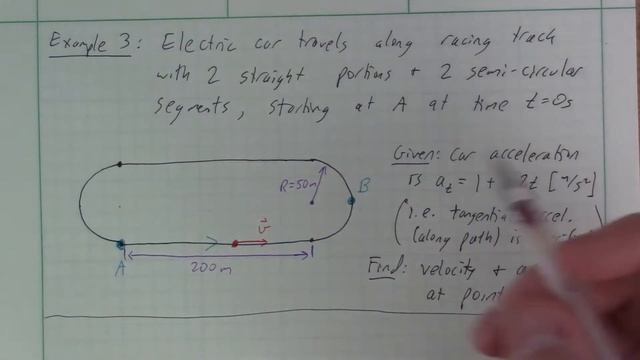 Example 3: Electric car travels along racing track
with 2 straight portions + 2 semi-circular
segments, starting at A at time t=0s
Given: car acceleration
is a_t = 1 + 2t [m/s²]
(i.e. tangential accel.
(along path) is
Find: velocity +
at point
R=50m
B
v
A
200m